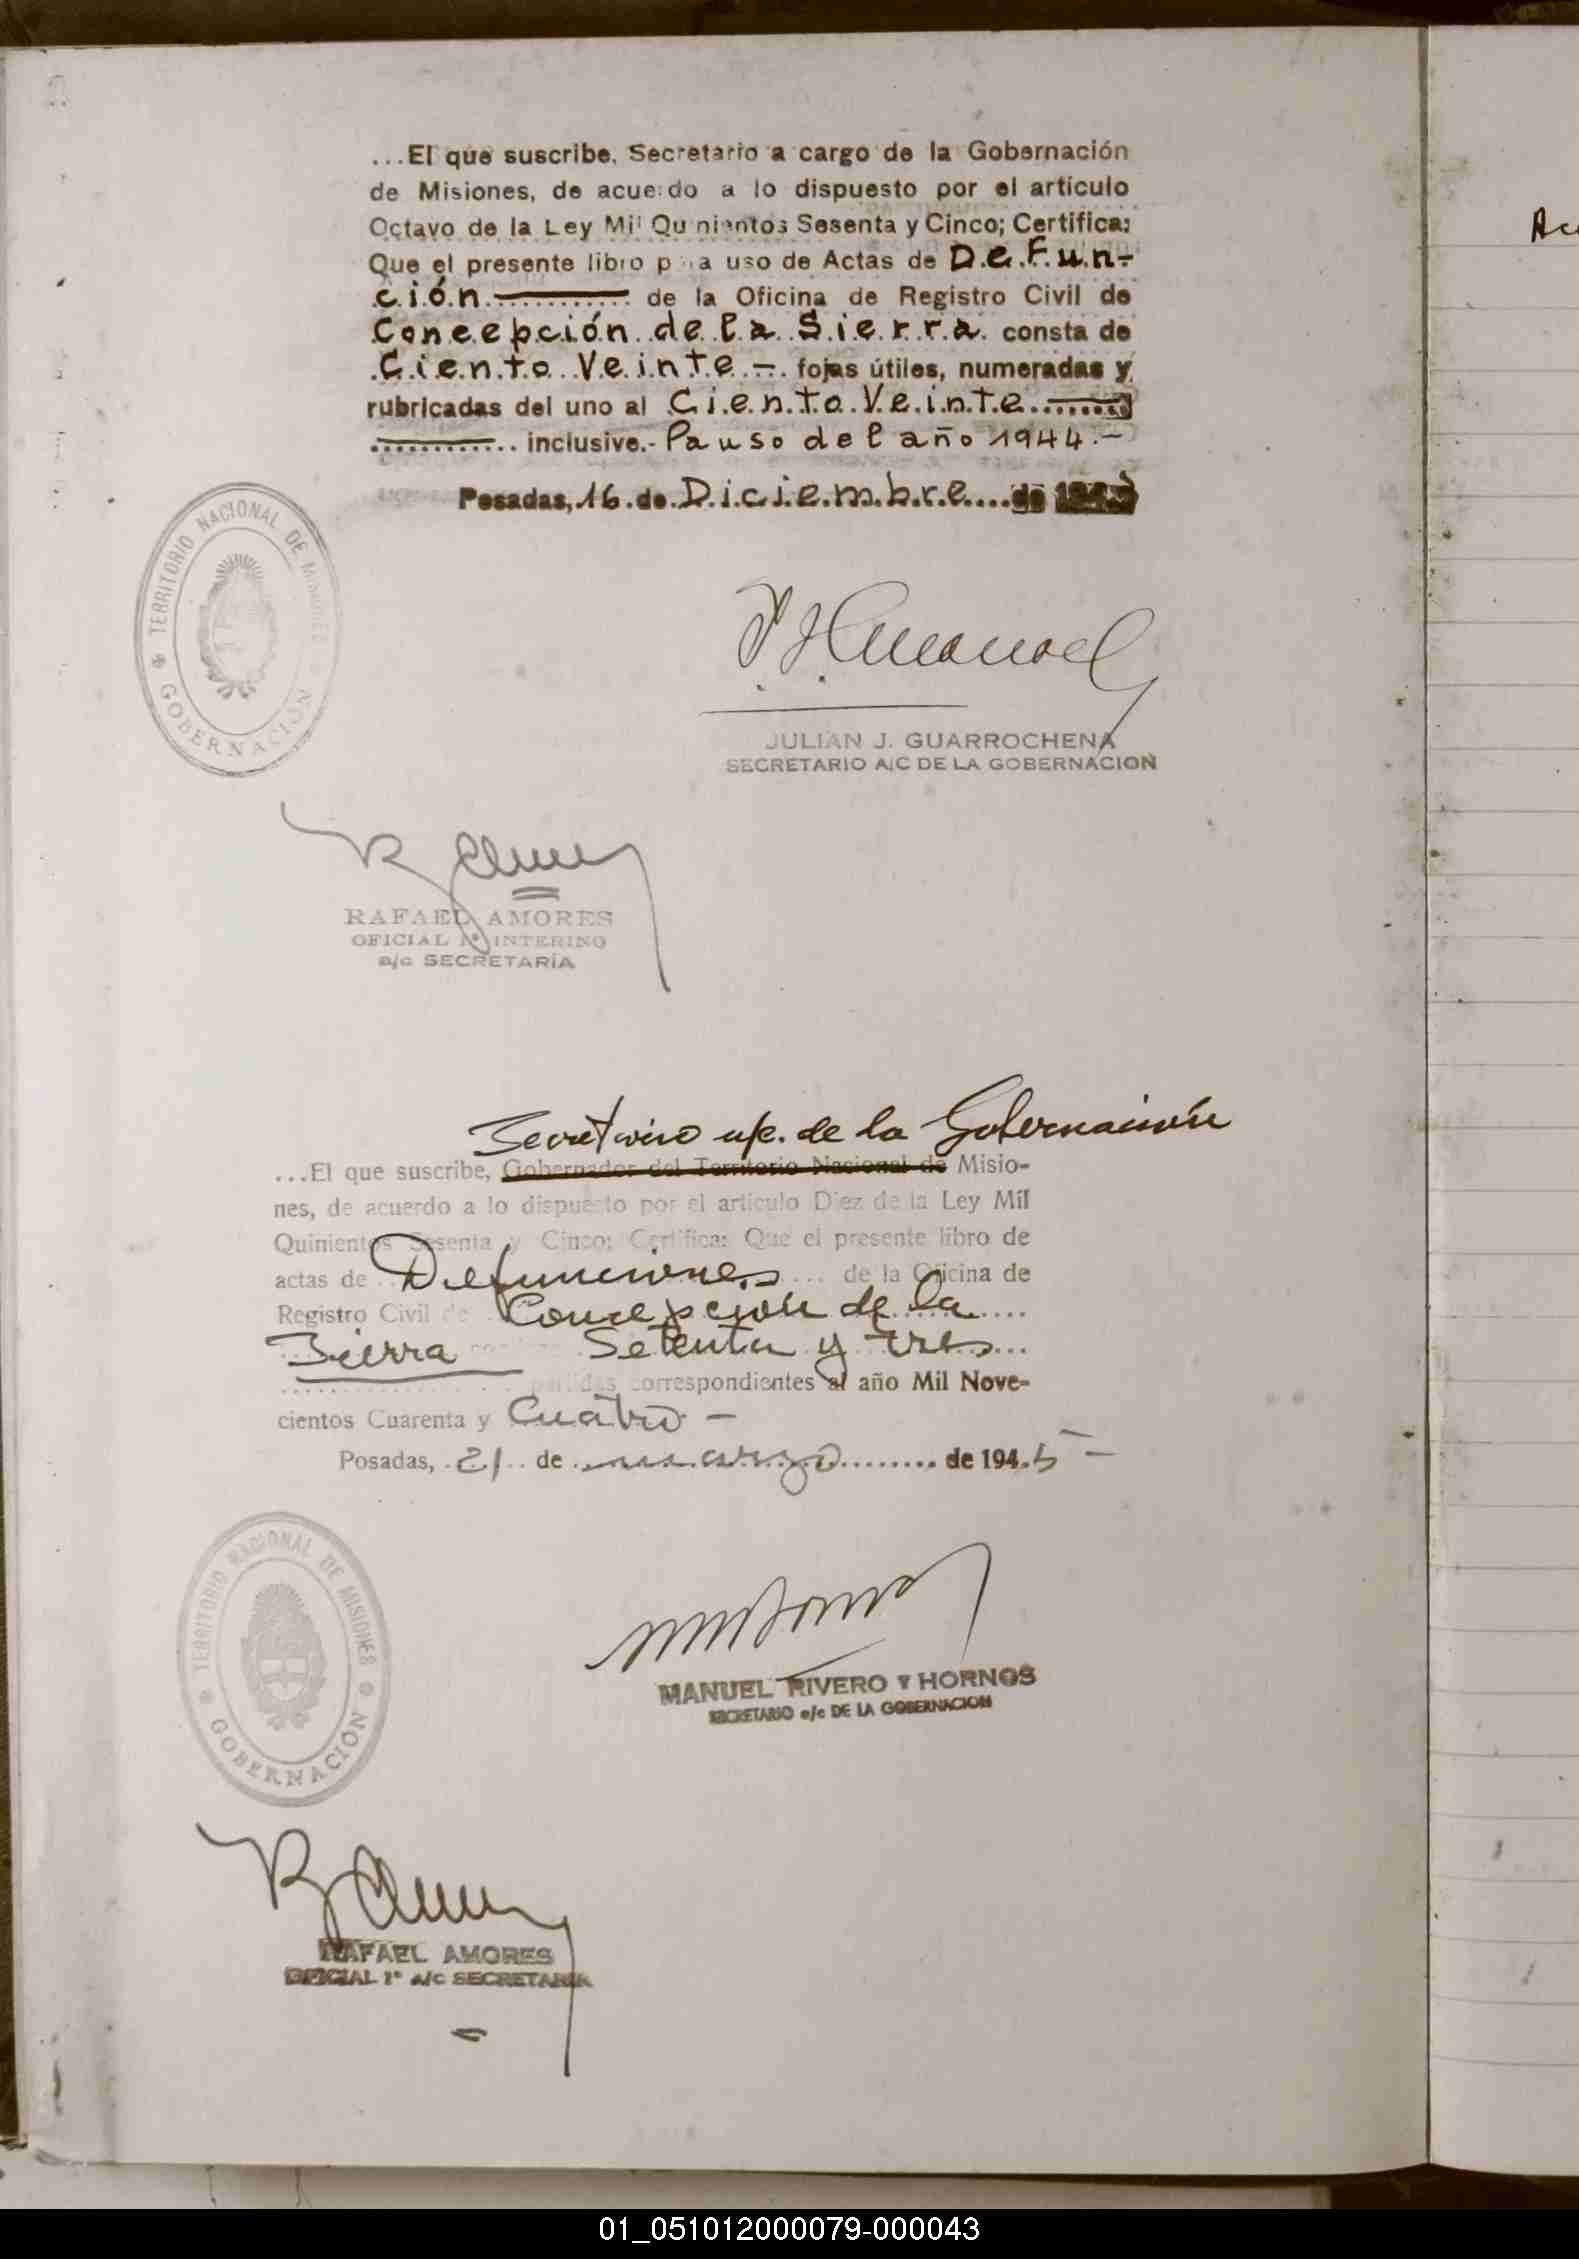 ...El que suscribe, Secretario a cargo de la Gobernación
de Misiones, de acuerdo a lo dispuesto por el artículo
Octavo de la Ley Mil Quinientos Sesenta y Cinco; Certifica:
Que el presente libro para uso de Actas de Defun-
ción de la Oficina de Registro Civil de
Concepción de la Sierra consta de
Ciento Veinte - fojas útiles, numeradas y
rubricadas del uno al Ciento Veinte
inclusive.- Pa uso del año 1944.-
Posadas, 16 de Diciembre de
TERRITORIO NACIONAL DE MISIONES
GOBERNACIÓN
JULIAN J. GUARROCHENA
SECRETARIO A/C DE LA GOBERNACION
RAFAEL AMORES
OFICIAL 1º INTERINO
a/c SECRETARÍA
Secretario a/c. de la Gobernación
...El que suscribe, Gobernador del Territorio Nacional de Misio-
nes, de acuerdo a lo dispuesto por el artículo Diez de la Ley Mil
Quinientos Sesenta y Cinco; Certifica: Que el presente libro de
actas de Defunciones de la Oficina de
Registro Civil de Concepción de la
Sierra Setenta y tres
partidas correspondientes al año Mil Nove-
cientos Cuarenta y Cuatro -
Posadas, 21 de marzo de 1945 -
TERRITORIO NACIONAL DE MISIONES
GOBERNACIÓN
MANUEL RIVERO Y HORNOS
SECRETARIO a/c DE LA GOBERNACION
RAFAEL AMORES
OFICIAL 1º A/C SECRETARIA
01_051012000079-000043